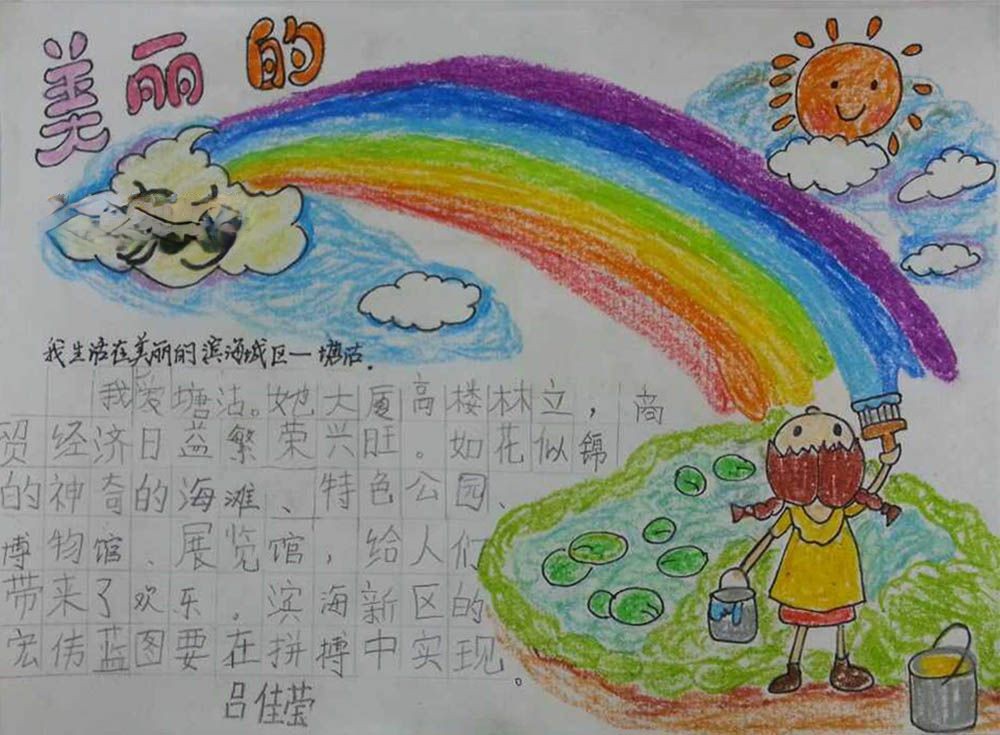 美丽的
我生活在美丽的滨海城区一塘沽.
我爱塘沽。她大厦高楼林立,商
贸经济日益繁荣兴旺。如花似锦
的神奇的海滩、特色公园、
博物馆、展览馆,给人们
带来了欢乐。滨海新区的
宏伟蓝图要在拼搏中实现。
吕佳莹